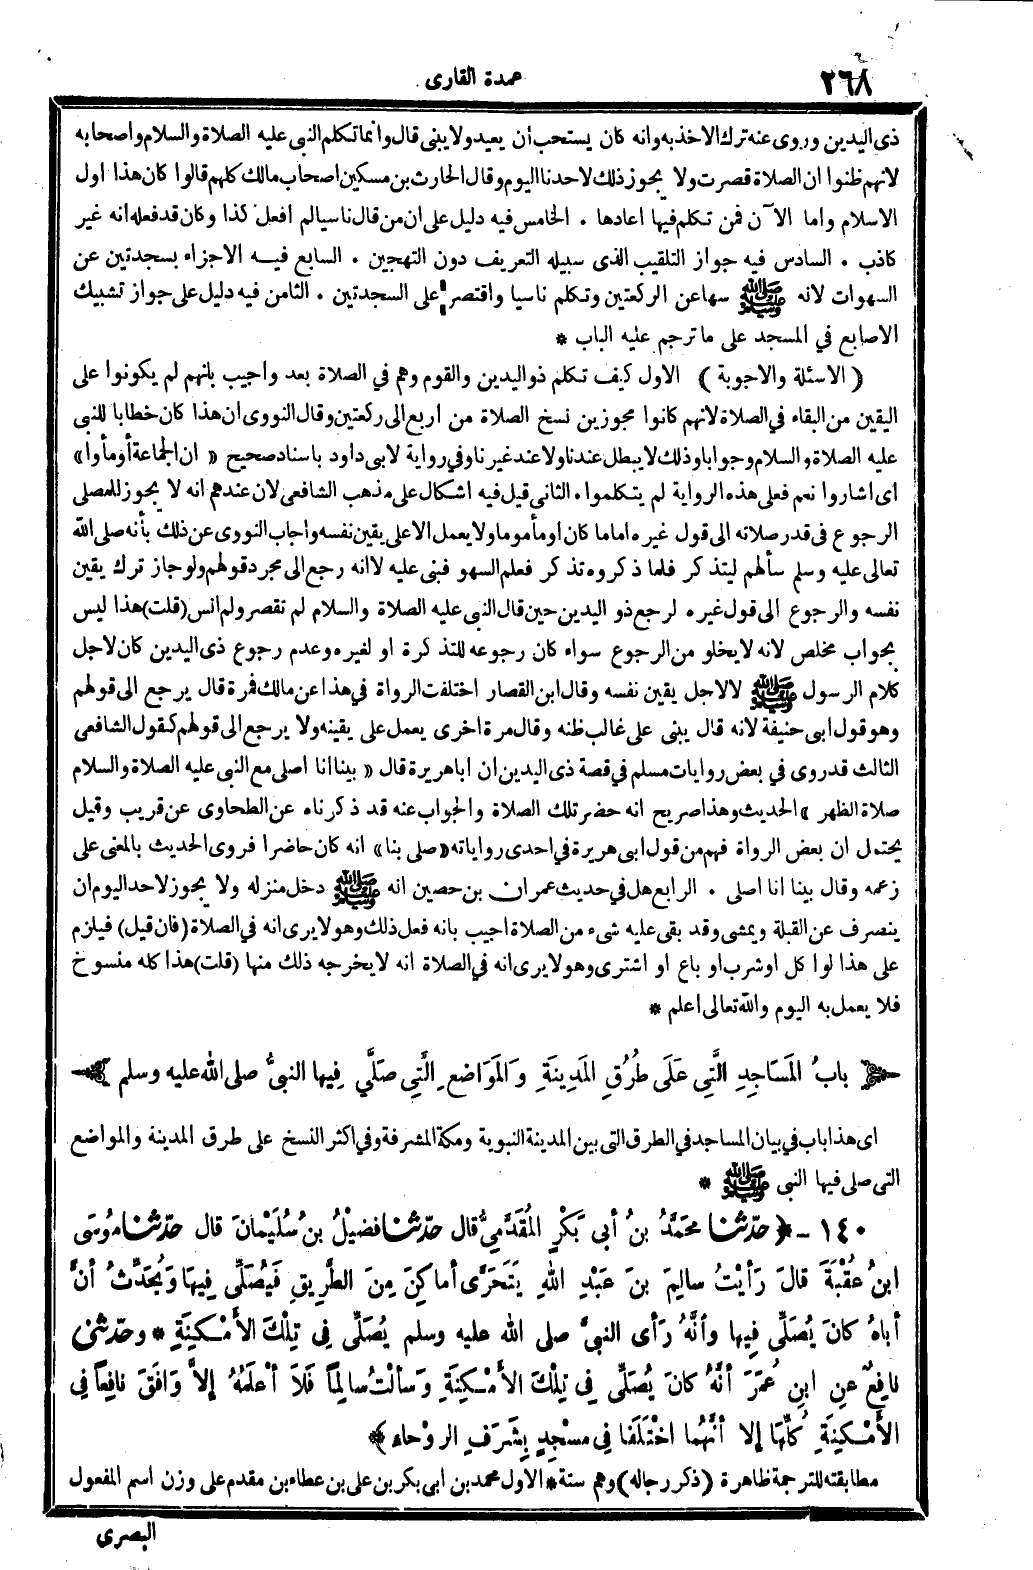 ٢٦٨
عمدة القارى
ذى اليدين وروى عنه ترك الاخذ به وانه كان يستحب أن يعيد ولا يبنى قال وانما تكلم النبى عليه الصلاة والسلام واصحابه
لانهم ظنوا ان الصلاة قصرت ولا يجوز ذلك لاحدنا اليوم وقال الحارث بن مسكين اصحاب مالك كلهم قالوا كان هذا اول
الاسلام واما الآن فمن تكلم فيها اعادها . الخامس فيه دليل على ان من قال ناسيا لم افعل كذا وكان قد فعله انه غير
كاذب . السادس فيه جواز التلقيب الذى سبيله التعريف دون التهجين . السابع فيه الاجزاء بسجدتين عن
السهوات لانه ﷺ سها عن الركعتين وتكلم ناسيا واقتصر على السجدتين . الثامن فيه دليل على جواز تشبيك
الاصابع في المسجد على ما ترجم عليه الباب *
( الاسئلة والاجوبة ) الاول كيف تكلم ذو اليدين والقوم وهم في الصلاة بعد واجيب بانهم لم يكونوا على
اليقين من البقاء في الصلاة لانهم كانوا مجوزين نسخ الصلاة من اربع الى ركعتين وقال النووى ان هذا كان خطابا للنبى
عليه الصلاة والسلام وجوابا وذلك لا يبطل عندنا ولا عند غيرنا وفي رواية لابى داود باسناد صحيح « ان الجماعة أومأوا»
اى اشاروا نعم فعلى هذه الرواية لم يتكلموا . الثانى قيل فيه اشكال على مذهب الشافعى لان عندهم انه لا يجوز للمصلى
الرجوع في قدر صلاته الى قول غيره اماما كان او مأموما ولا يعمل الا على يقين نفسه واجاب النووى عن ذلك بأنه صلى الله
تعالى عليه وسلم سألهم ليتذكر فلما ذكروه تذكر فعلم السهو فبنى عليه لا انه رجع الى مجرد قولهم ولو جاز ترك يقين
نفسه والرجوع الى قول غيره لرجع ذو اليدين حين قال النبى عليه الصلاة والسلام لم تقصر ولم انس (قلت) هذا ليس
بجواب مخلص لانه لا يخلو من الرجوع سواء كان رجوعه للتذكرة او لغيره وعدم رجوع ذى اليدين كان لاجل
كلام الرسول ﷺ لا لاجل يقين نفسه وقال ابن القصار اختلفت الرواة في هذا عن مالك فمرة قال يرجع الى قولهم
وهو قول ابى حنيفة لانه قال يبنى على غالب ظنه وقال مرة اخرى يعمل على يقينه ولا يرجع الى قولهم كقول الشافعى
الثالث قد روى في بعض روايات مسلم في قصة ذى اليدين ان ابا هريرة قال « بينا انا اصلى مع النبى عليه الصلاة والسلام
صلاة الظهر » الحديث وهذا صريح انه حضر تلك الصلاة والجواب عنه قد ذكرناه عن الطحاوى عن قريب وقيل
يحتمل ان بعض الرواة فهم من قول ابى هريرة في احدى رواياته «صلى بنا» انه كان حاضرا فروى الحديث بالمعنى على
زعمه وقال بينا انا اصلى . الرابع هل في حديث عمران بن حصين انه ﷺ دخل منزله ولا يجوز لاحد اليوم ان
ينصرف عن القبلة ويمشى وقد بقى عليه شىء من الصلاة اجيب بانه فعل ذلك وهو لا يرى انه في الصلاة (فان قيل) فيلزم
على هذا لو اكل او شرب او باع او اشترى وهو لا يرى انه في الصلاة انه لا يخرجه ذلك منها (قلت) هذا كله منسوخ
فلا يعمل به اليوم والله تعالى اعلم *
بابُ المَسَاجِدِ الَّتِي عَلَى طُرُقِ المَدِينَةِ وَالمَوَاضِعِ الَّتِي صَلَّي فِيها النبىُّ صلى الله عليه وسلم
اى هذا باب في بيان المساجد في الطرق التى بين المدينة النبوية ومكة المشرفة وفي اكثر النسخ على طرق المدينة والمواضع
التى صلى فيها النبى ﷺ *
١٤٠ - ﴿ حدّثنا محَمَّدُ بنُ أبي بَكْرٍ المُقَدَّمِيُّ قال حدّثنا فضيْلُ بنُ سُلَيْمانَ قال حدّثنا مُوسَى
ابنُ عُقْبَةَ قالَ رَأيْتُ سالِمَ بنَ عَبْدِ اللهِ يَتَحَرَّى أماكِنَ مِنَ الطَّرِيقِ فَيُصَلِّى فِيها وَيُحَدِّثُ أنَّ
أباهُ كانَ يُصَلِّى فِيها وأنَّهُ رَأى النبىَّ صلى الله عليه وسلم يُصَلِّى فِي تِلْكَ الأَمْكِنَةِ * وحدّثنى
نافِعٌ عنِ ابنِ عُمَرَ أنَّهُ كانَ يُصَلِّى فِي تِلْكَ الأَمْكِنَةِ وَسألْتُ سالِمًا فَلَا أعْلَمُهُ إلاَّ وَافَقَ نافِعًا فِي
الأَمْكِنَةِ كُلِّها إلا أنَّهُما اخْتَلَفَا فِي مسْجِدٍ بِشَرَفِ الروْحاء ﴾
مطابقته للترجمة ظاهرة (ذكر رجاله) وهم ستة * الاول محمد بن ابى بكر بن على بن عطاء بن مقدم على وزن اسم المفعول
البصرى